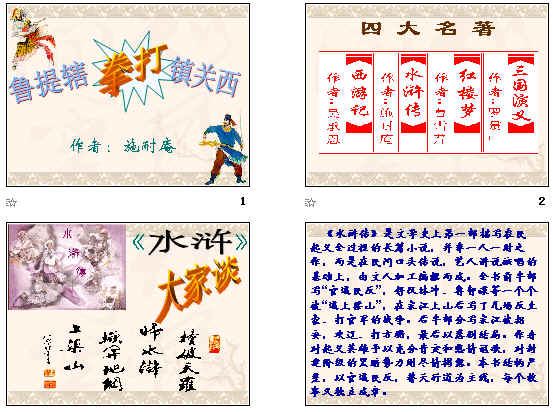 鲁提辖拳打镇关西
作者：施耐庵
1
四大名著
三国演义
作者：罗贯
红楼梦
作者：曹雪芹
水浒传
作者：施耐庵
西游记
作者：吴承恩
2
水浒传
《水浒》
大家谈
撞破天罗
归水浒
掀开地网
上梁山
《水浒传》是文学史上第一部描写农民
起义全过程的长篇小说，并非一人一时之
作，而是在民间口头传说，艺人讲说演唱的
基础上，由文人加工编撰而成。全书前半部
写“官逼民反”，好汉林冲、鲁智深等一个个
被“逼上梁山”，在宋江上山后写了几场反土
豪、打官军的战争。后半部分写宋江被招
安，攻辽、打方腊，最后以悲剧结局。作者
对起义英雄予以充分肯定和热情讴歌，对封
建阶级的罪恶势力则尽情揭露。本书结构严
谨，以官逼民反，替天行道为主线，每个故
事又独立成章。